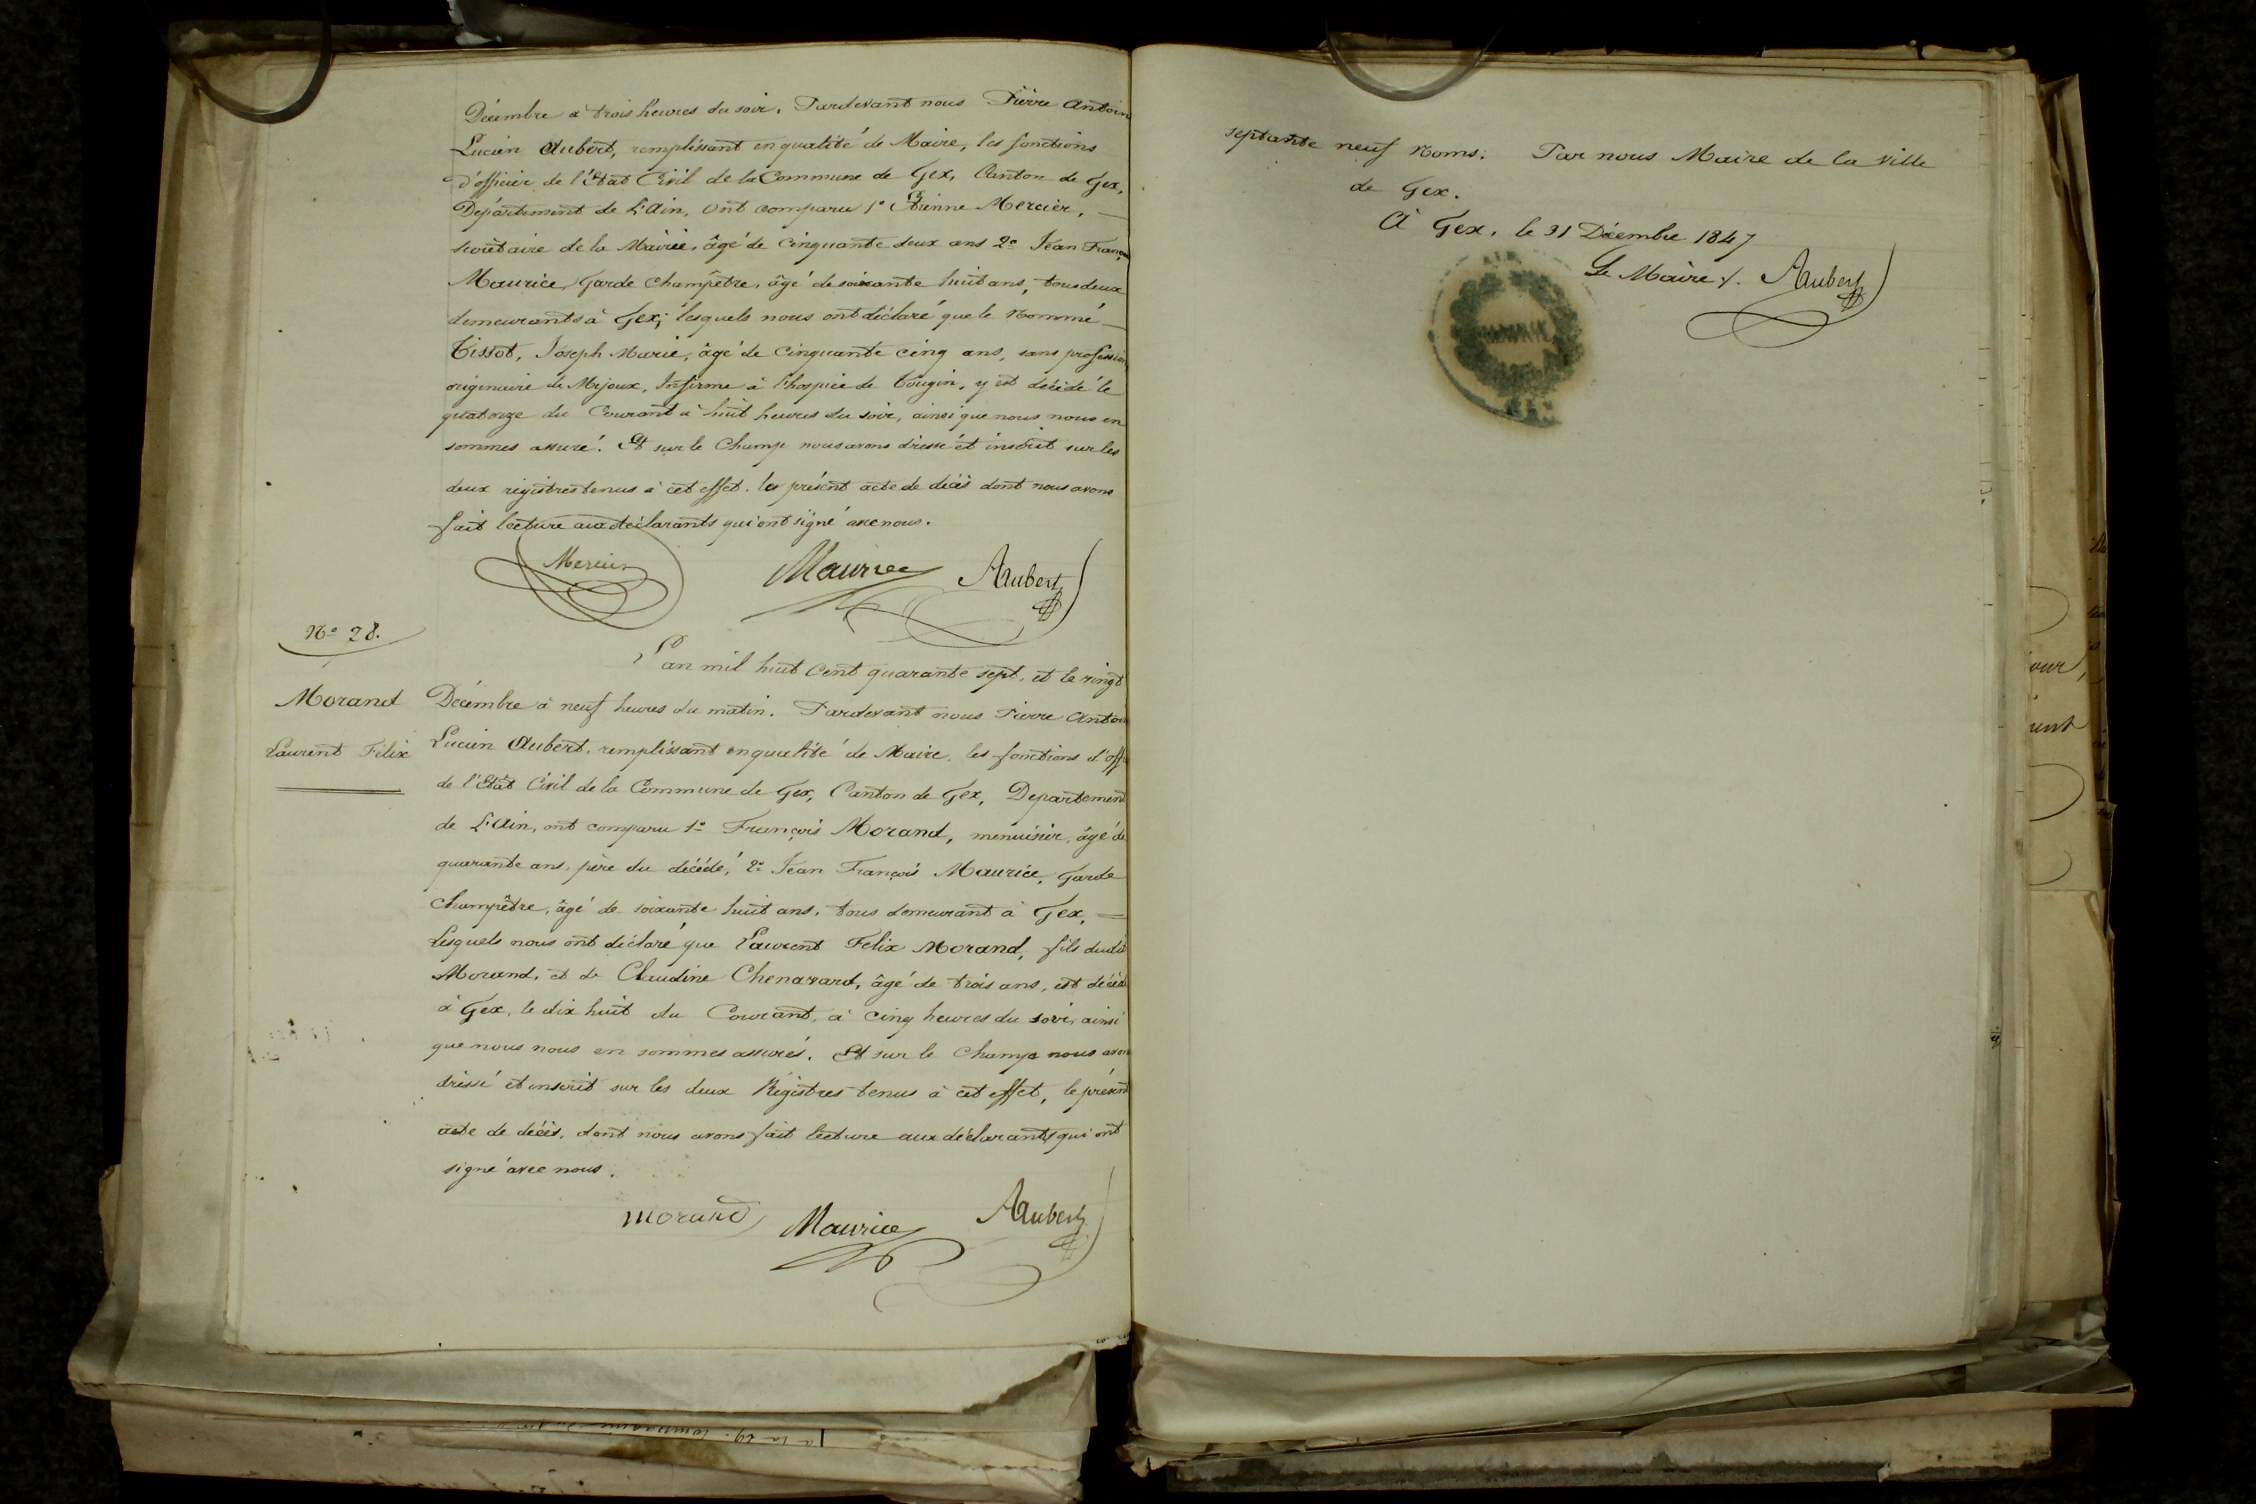 Décembre à trois heures du soir. Pardevant nous Pierre Antoin
Lucien Aubert, remplissant en qualité de Maire, les fonctions
d'officier de l'Etat Civil de la Commune de Gex, Canton de Gex,
Département de L'Ain, ont comparu 1° Etienne Mercier,
secrétaire de la Mairie, âgé de cinquante deux ans 2° Jean Franço
Maurice, Garde Champêtre, âgé de soixante huit ans, tous deux
demeurants à Gex; lesquels nous ont déclaré que le nommé
Tissot, Joseph Marie, âgé de cinquante cinq ans, sans profession
originaire de Mijoux, Infirme à l'hospice de Tougin, y est décédé le
quatorze du Courant à huit heures du soir, ainsi que nous nous en
sommes assuré. Et sur le Champ nous avons dressé et inscrit sur les
deux régistres tenus à cet effet. le présent acte de décès dont nous avons
fait lecture aux déclarants qui ont signé avec nous.
Mercier Maurice AAubert
N° 28.
L'an mil huit Cent quarante sept, et le vingt
Morand
Décembre à neuf heures du matin. Pardevant nous Pierre Anton
Laurent Félix
Lucien Aubert, remplissant en qualité de Maire, les fonctions d'offi
de l'Etat Civil de la Commune de Gex, Canton de Gex, Departement
de L'Ain, ont comparu 1° François Morand, menuisier, âgé de
quarante ans, père du décédé, 2° Jean François Maurice, Garde
Champêtre, âgé de soixante huit ans, tous demeurant à Gex,
Lesquels nous ont déclaré que Laurent Felix Morand, fils dudit
Morand, et de Claudine Chenavard, âgé de trois ans, est décédé
à Gex, le dix huit du Courant, à cinq heures du soir, ainsi
que nous nous en sommes assurés. Et sur le Champ nous avons
dressé et inscrit sur les deux Régistres tenus à cet effet, le présent
acte de décès, dont nous avons fait lecture aux déclarants qui ont
signé avec nous.
Morand Maurice AAubert
septante neuf noms. Par nous Maire de la ville
de Gex.
A Gex, le 31 Décembre 1847
Le Maire. AAubert